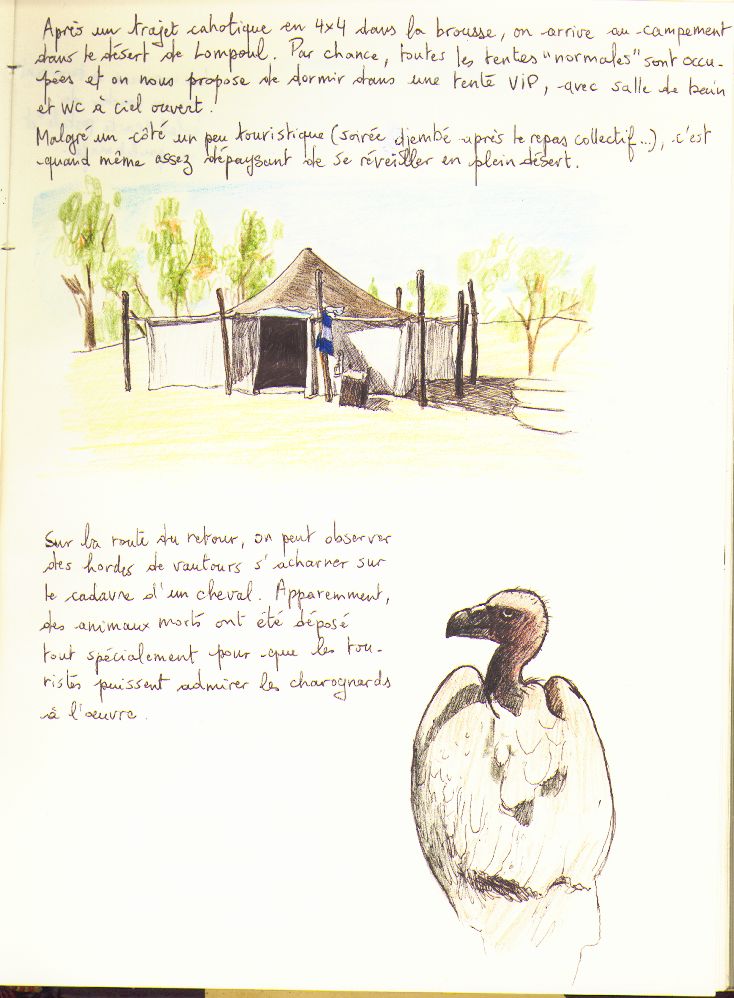 Après un trajet cahotique en 4x4 dans la brousse, on arrive au campement
dans le désert de Lompoul. Par chance, toutes les tentes "normales" sont occu-
pées et on nous propose de dormir dans une tente VIP, avec salle de bain
et WC à ciel ouvert.
Malgré un côté un peu touristique (soirée djembé après le repas collectif...), c'est
quand même assez dépaysant de se réveiller en plein désert.
Sur la route du retour, on peut observer
des hordes de vautours s'acharner sur
le cadavre d'un cheval. Apparemment,
des animaux morts ont été déposé
tout spécialement pour que les tou-
ristes puissent admirer les charognards
à l'œuvre.